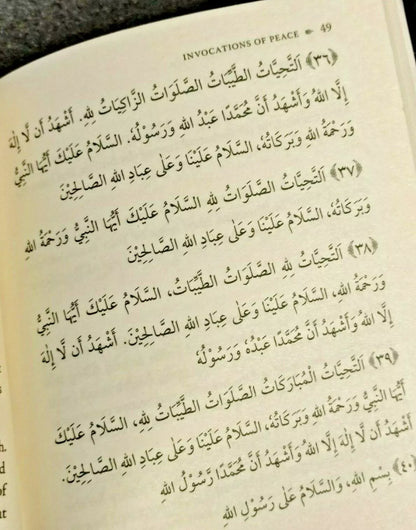 INVOCATIONS OF PEACE 49
﴿٣٦﴾ اَلتَّحِيَّاتُ الطَّيِّبَاتُ الصَّلَوَاتُ الزَّاكِيَاتُ لِلّٰهِ. أَشْهَدُ أَن لَّا إِلٰهَ
إِلَّا اللهُ وَأَشْهَدُ أَنَّ مُحَمَّدًا عَبْدُ اللهِ وَرَسُوْلُهُ. اَلسَّلَامُ عَلَيْكَ أَيُّهَا النَّبِيُّ
وَرَحْمَةُ اللهِ وَبَرَكَاتُهُ، اَلسَّلَامُ عَلَيْنَا وَعَلٰى عِبَادِ اللهِ الصَّالِحِيْنَ
﴿٣٧﴾ اَلتَّحِيَّاتُ الصَّلَوَاتُ لِلّٰهِ السَّلَامُ عَلَيْكَ أَيُّهَا النَّبِيُّ وَرَحْمَةُ اللهِ
وَبَرَكَاتُهُ، اَلسَّلَامُ عَلَيْنَا وَعَلٰى عِبَادِ اللهِ الصَّالِحِيْنَ
﴿٣٨﴾ اَلتَّحِيَّاتُ لِلّٰهِ الصَّلَوَاتُ الطَّيِّبَاتُ، اَلسَّلَامُ عَلَيْكَ أَيُّهَا النَّبِيُّ
وَرَحْمَةُ اللهِ، اَلسَّلَامُ عَلَيْنَا وَعَلٰى عِبَادِ اللهِ الصَّالِحِيْنَ. أَشْهَدُ أَن لَّا إِلٰهَ
إِلَّا اللهُ وَأَشْهَدُ أَنَّ مُحَمَّدًا عَبْدُهُ وَرَسُوْلُهُ
﴿٣٩﴾ اَلتَّحِيَّاتُ الْمُبَارَكَاتُ الصَّلَوَاتُ الطَّيِّبَاتُ لِلّٰهِ، اَلسَّلَامُ عَلَيْكَ
أَيُّهَا النَّبِيُّ وَرَحْمَةُ اللهِ وَبَرَكَاتُهُ، اَلسَّلَامُ عَلَيْنَا وَعَلٰى عِبَادِ اللهِ الصَّالِحِيْنَ.
أَشْهَدُ أَن لَّا إِلٰهَ إِلَّا اللهُ وَأَشْهَدُ أَنَّ مُحَمَّدًا رَّسُوْلُ اللهِ
﴿٤٠﴾ بِسْمِ اللهِ، وَالسَّلَامُ عَلٰى رَسُوْلِ اللهِ